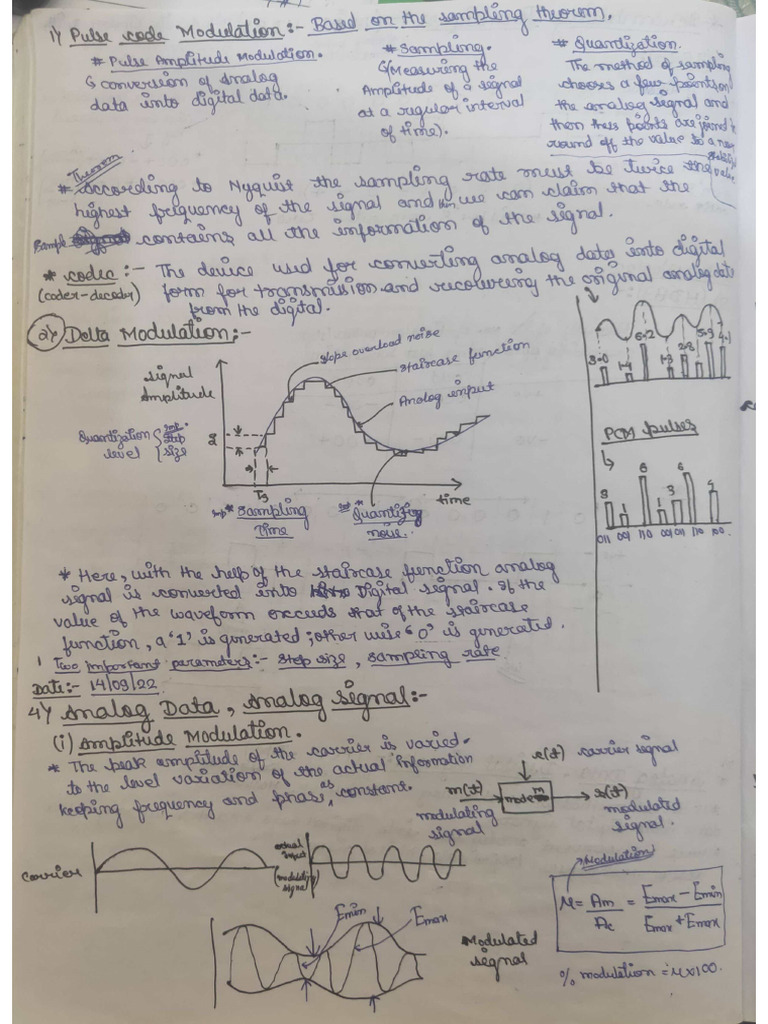 1) Pulse code Modulation:- Based on the sampling theorem.
# Pulse Amplitude Modulation.
↳ conversion of analog
data into digital data.
# Sampling.
↳(Measuring the
Amplitude of a signal
at a regular interval
of time).
# Quantization.
The method of sampling
chooses a few points on
the analog signal and
then these points are joined to
round off the value to a near
stabilize value
Theorem
* According to Nyquist the sampling rate must be twice the
highest frequency of the signal and then we can claim that the
Sample contains all the information of the signal.
* codec:- The device used for converting analog data into digital
(coder-decoder) form for transmission and recovering the original analog data
from the digital.
2) Delta Modulation:-
Signal
Amplitude
slope overload noise
staircase function
Analog input
Quantization
level
step
size
Ts
time
Sampling
Time
Quantizing
noise.
3.0 1.4 6.2 1.3 2.8 5.3 4.1
PCM pulses
3 1 6 1 3 6 4
011 001 110 001 011 110 100
* Here, with the help of the staircase function analog
signal is converted into Digital signal. If the
value of the waveform exceeds that of the staircase
function, a '1' is generated; otherwise '0' is generated.
Two important parameters:- step size, sampling rate
Date:- 14/09/22
4) Analog Data, Analog Signal:-
(i) Amplitude Modulation.
* The peak amplitude of the carrier is varied
to the level variation of the actual information
keeping frequency and phase as constant.
c(t) carrier signal
m(t)
s(t)
modulating
signal
modulated
signal.
carrier
actual
input
(modulating
signal)
Emin
Emax
Modulated
signal
Modulation
μ = Am/Ac = Emax - Emin / Emax + Emax
% modulation = μ×100.